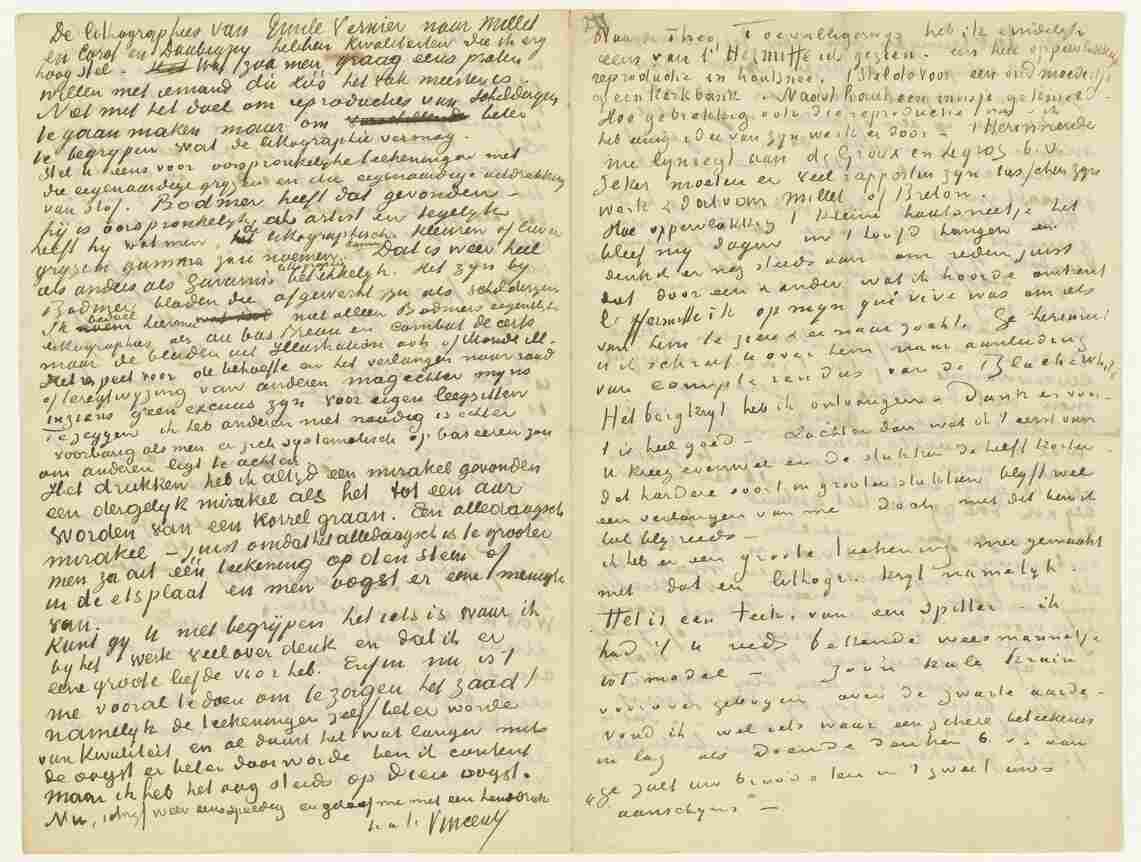 De lithographies van Emile Vernier naar Millet
en Corot en Daubigny hebben kwaliteiten die ik erg
hoog stel. zou men graag eens praten
willen met iemand die zóó het vak meester is.
Niet met het doel om reproducties van schilderijen
te gaan maken maar om beter
te begrijpen wat de lithographie vermag.
Stel U eens voor oorspronkelijke teekeningen met
die eigenaardige gryzen en die eigenaardige uitdrukking
van stof. Bodmer heeft dat gevonden –
hij is oorspronkelijk als artist en tegelyk
heeft hy wat men de lithographische kleuren of liever
gryzen gamma zou kunnen noemen. Dat is weer heel
als anders als Gavarni's betrekkelyk. Het zyn by
Bodmer bladen die afgewerkt zyn als schilderijen
Ik bedoel hiermee niet alleen Bodmers eigentlyke
lithographies als au bas Breau en Combat de cerfs
maar de bladen uit Illustration ook of Monde ill.
Het respect voor de behoefte en het verlangen naar raad
of teregtwyzing van anderen mag echter myns
inziens geen excuus zyn voor eigen leegzitten
te zeggen ik heb anderen niet noodig is echter
voorbarig als men er zich systematisch op baseeren zou
om anderen niet te achten
Het drukken heb ik altyd een mirakel gevonden
een dergelyk mirakel als het tot een aar
worden van een korrel graan. Een alledaagsch
mirakel – juist omdat het alledaagsch is te grooter
men zaait één teekening op den steen of
in de etsplaat en men oogst er eene menigte
van.
Kunt gy U niet begrypen het iets is waar ik
by het werk veel over denk en dat ik er
eene groote liefde voor heb. Enfin nu is 't
me vooral te doen om te zorgen het zaad/
namelyk de teekeningen zelf/ beter worde
van kwaliteit en al duurt het wat langer mits
de oogst er beter door worde ben ik content
maar ik heb het oog steeds op dien oogst.
Nu, schryf weer eens spoedig en geloof me met een handdruk
t. à t. Vincent

Waarde Theo, Toevalligerwys heb ik eindelyk
eens van l'Hermitte iets gezien. een heel oppervlakkige
reproductie in houtsnee. 't Stelde voor een oud moedertje
in een kerkbank. Naast haar een meisje geknield.
Hoe gebrekkig ook die reproductie was – ik
heb eenig idee van zyn werk er door – 't Herinnerde
me lynregt aan de Groux en Legros b.v.
Zeker moeten er veel rapporten zyn tusschen zyn
werk & dat van Millet of Breton.
Hoe oppervlakkig 't kleine houtsneetje het
bleef my dagen in 't hoofd hangen en
denk er nog steeds aan om reden juist
dat door een & ander wat ik hoorde omtrent
l'Hermitte ik op myn qui vive was om iets
van hem te zien & er naar zocht. Ge herinnert
U ik schreef U over hem naar aanleiding
van compte rendus van de Black & White
Het bergkryt heb ik ontvangen – Dank er voor –
't is heel goed – Zachter dan wat ik 't eerst van
U kreeg evenwel en de stukken de helft korter
dat hardere soort in grooter stukken blyft wel
een verlangen van me. Doch met dit ben ik
ook bly reeds –
ik heb er een groote teekening mee gemaakt
met dat en lithogr. kryt namelyk.
Het is een teek. van een spitter – ik
had 't U reeds bekende weesmannetje
tot model – Zoo'n kale kruin
voorover gebogen over de zwarte aarde –
vond ik wel iets waar een zekere beteekenis
in lag als doende denken b.v. aan
"ge zult uw brood eten in 't zweet uws
aanschyns" –